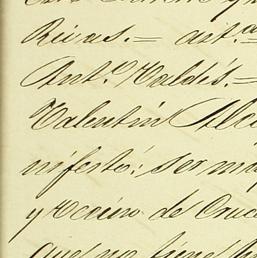 Rivas.= ait.a
Ant.o Valdés.=
Valentin Alc
nifestó: ser ma
y vecino de Cruc
que no tiene